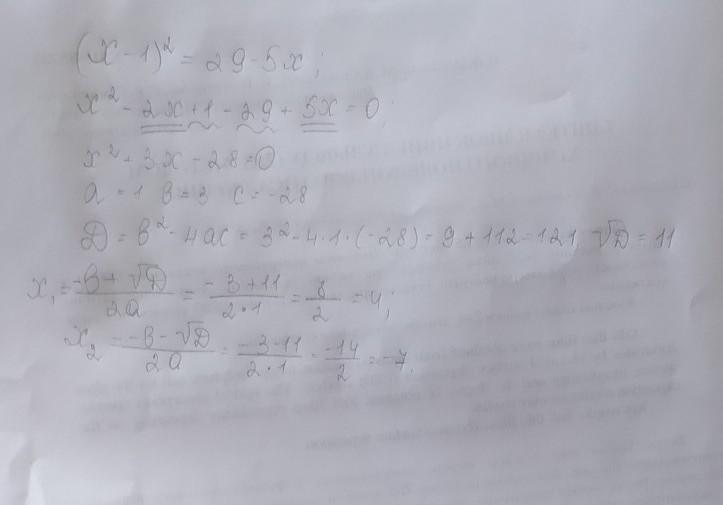 (x-1)² = 29-5x;
x² - 2x+1 - 29 + 5x = 0;
x² + 3x - 28 = 0
a = 1 b = 3 c = -28
D = b² - 4ac = 3² - 4·1·(-28) = 9 + 112 = 121, √D = 11
x₁ = (-b + √D)/2a = (-3+11)/(2·1) = 8/2 = 4;
x₂ = (-b - √D)/2a = (-3-11)/(2·1) = -14/2 = -7.